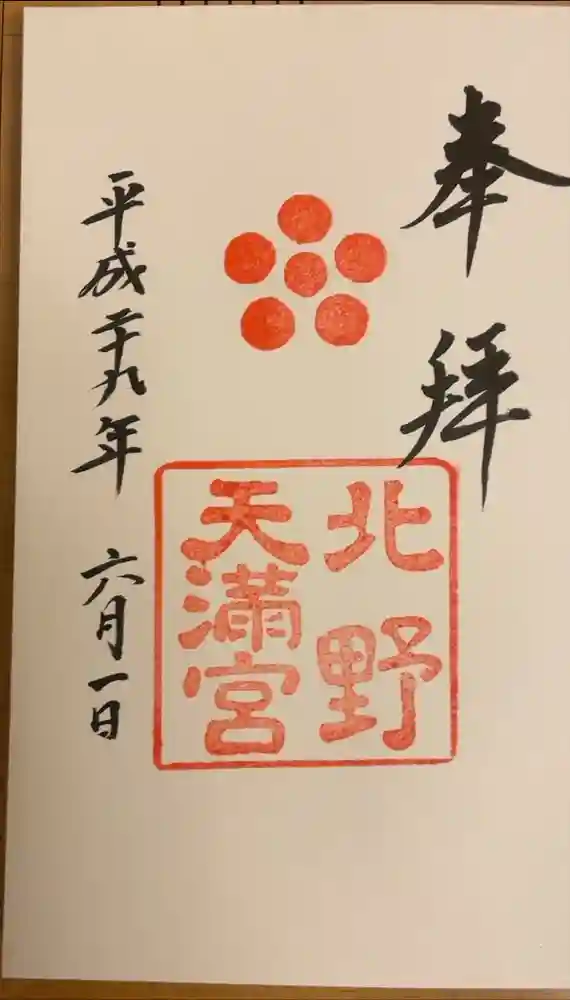 奉拝
北野
天満宮
平成二十九年 六月一日